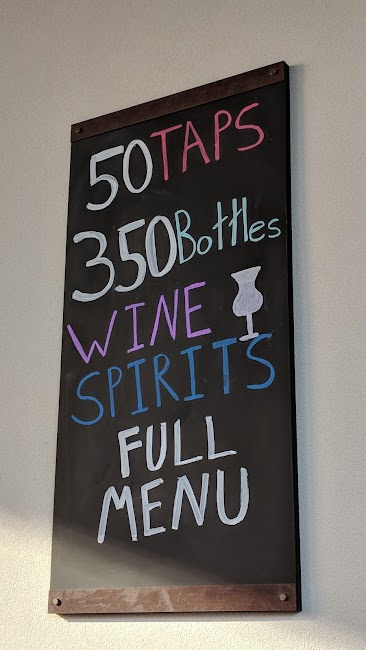 50 TAPS
350 Bottles
WINE
SPIRITS
FULL
MENU